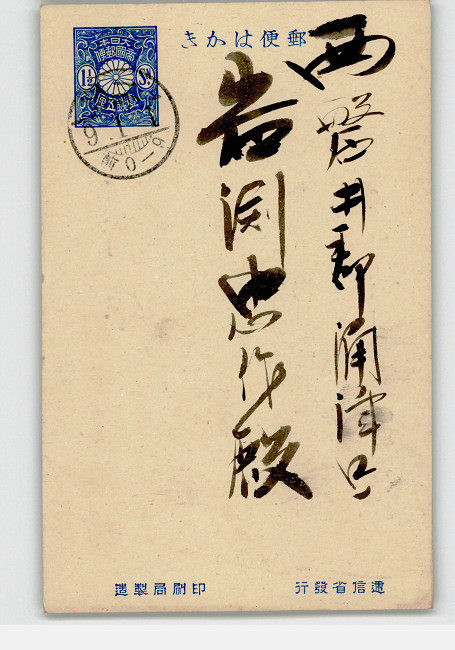 郵便はかき
大日本
帝國郵便
1½
壹錢五厘
9.1.1
西磐井郡涌津口
岩渕忠作殿
遞信省發行
印刷局製造